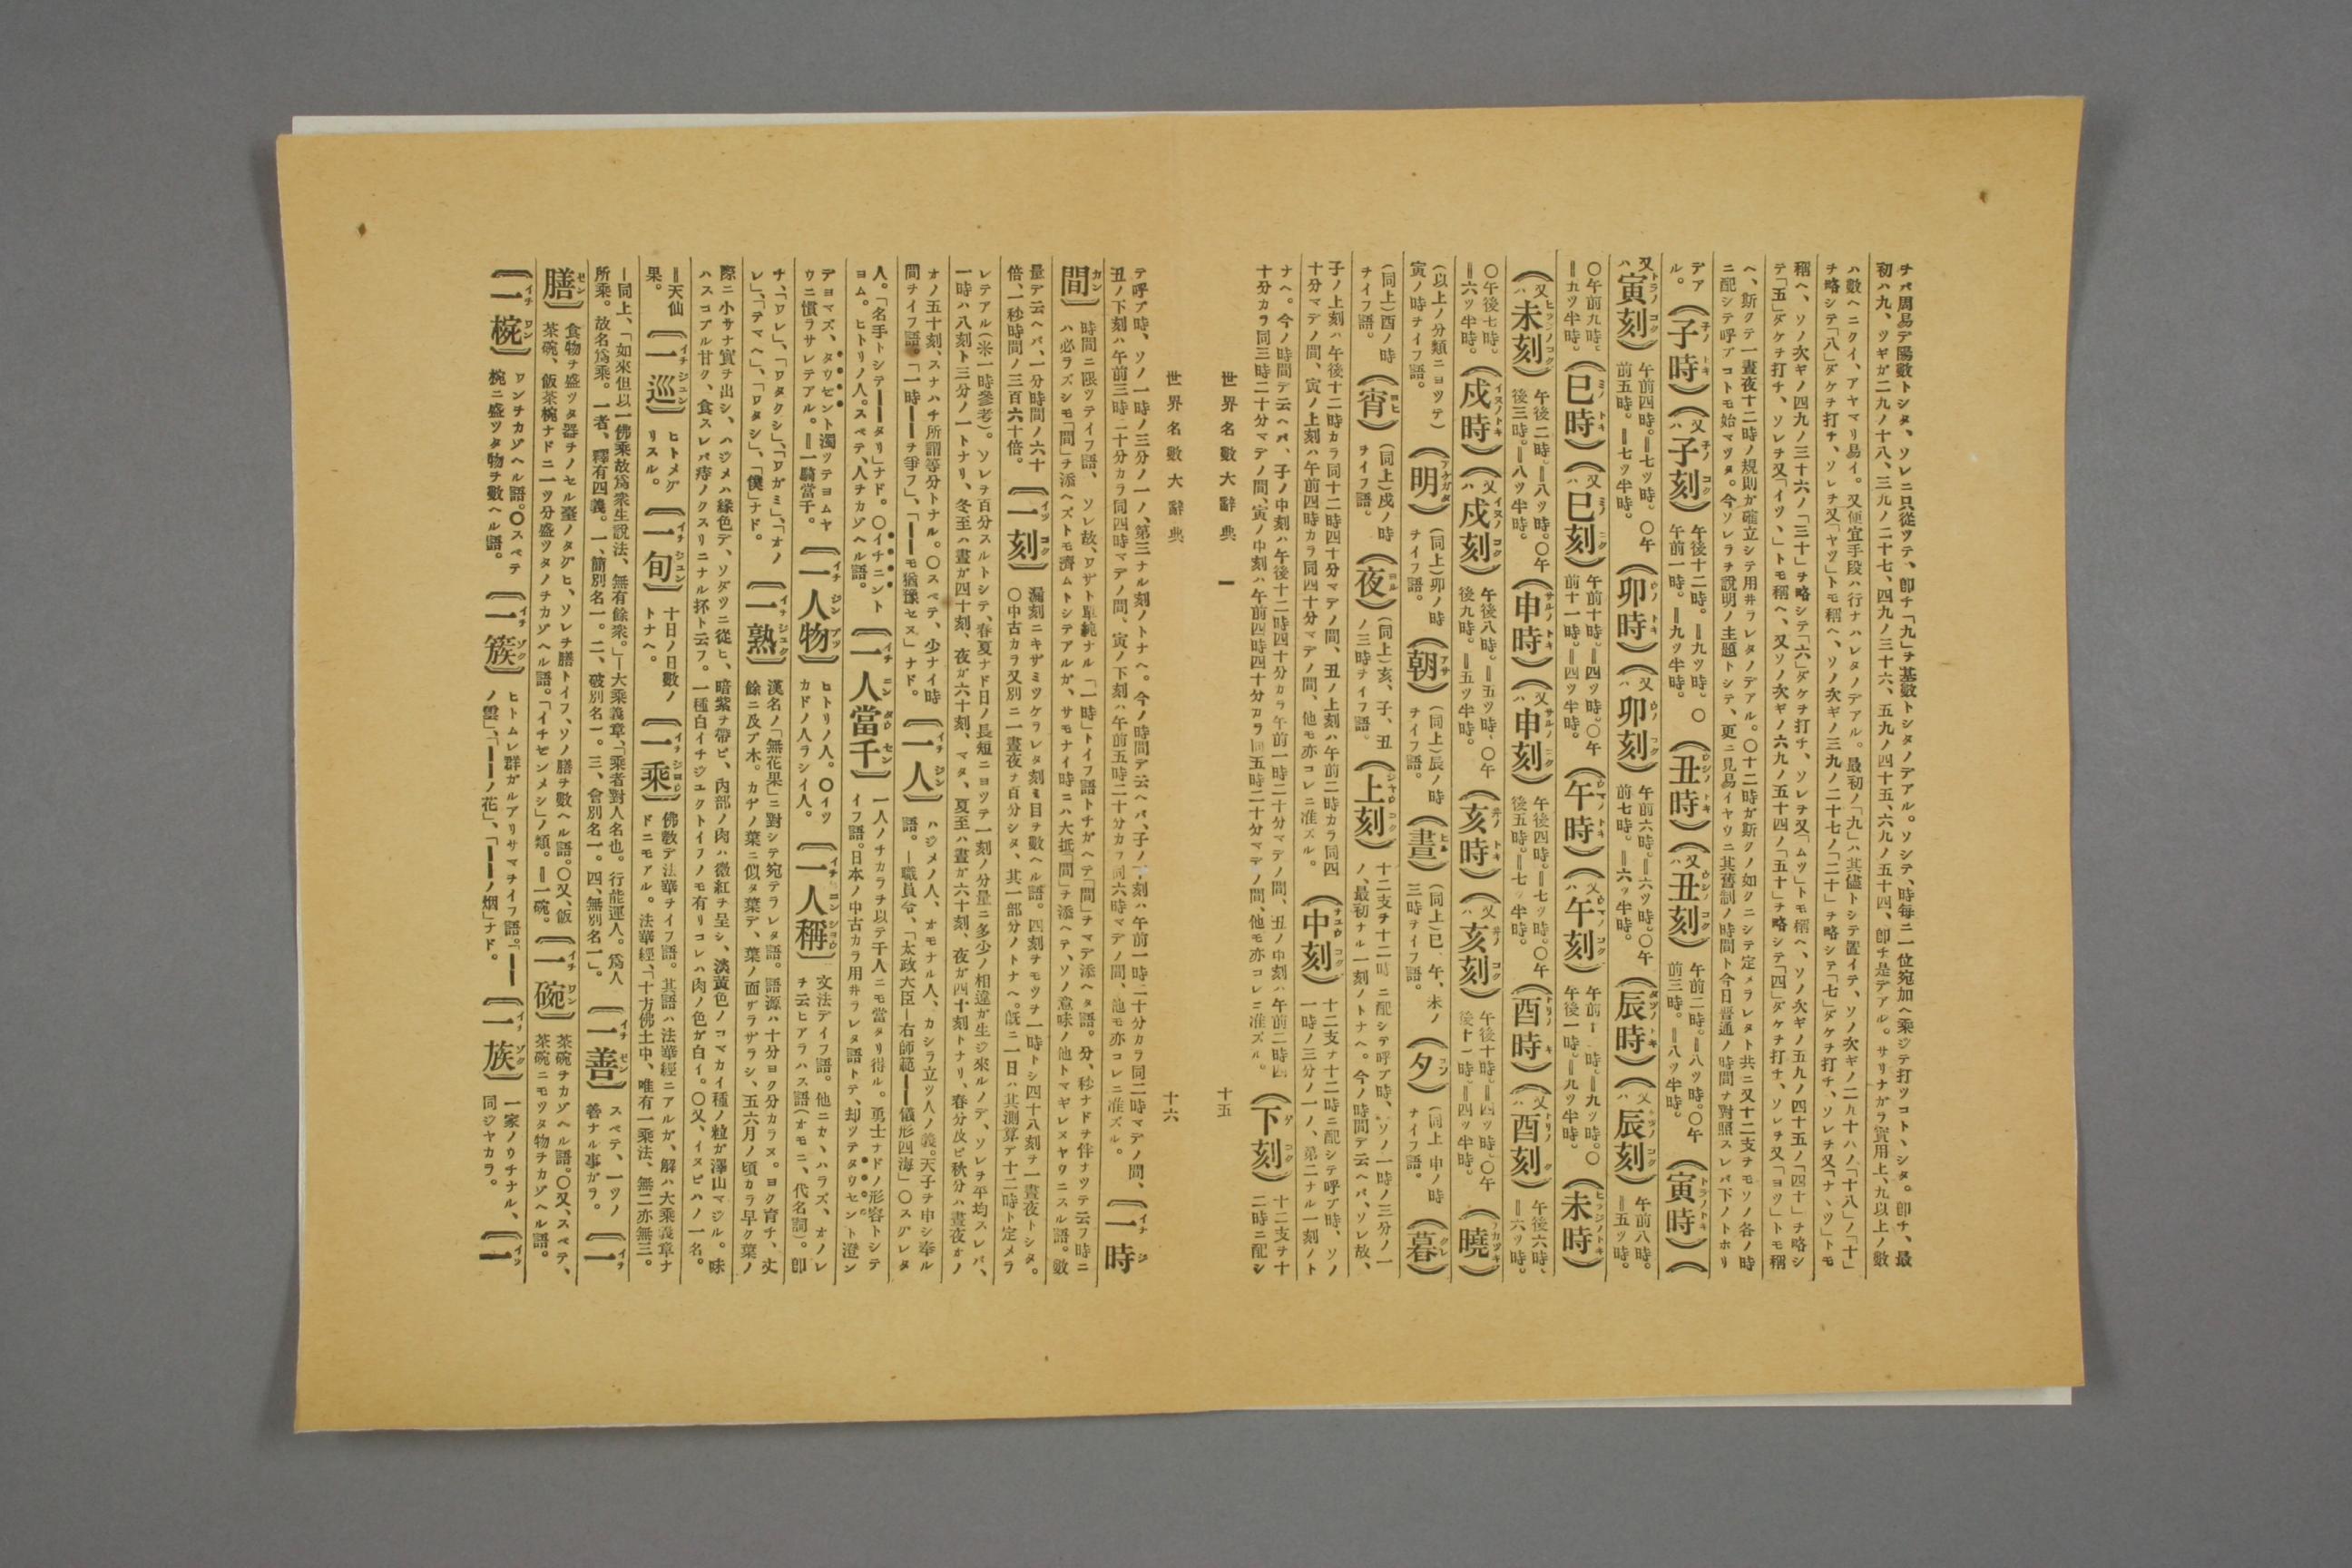 チバ周易デ陽數トシタ、ソレニ只從ツテ、卽チ「九」チ基數トシタノデアル。ソシテ、時每ニ一位宛加ヘ乘ジテ打ツコトヽシタ。卽チ、最
初ハ九、ツギガ二九ノ十八、三九ノ二十七、四九ノ三十六、五九ノ四十五、六九ノ五十四、卽チ是デアル。サリナガラ實用上、九以上ノ數
ハ數ヘニクイ、アヤマリ易イ。又便宜手段ハ行ナハレタノデアル。最初ノ「九」ハ其儘トシテ置イテ、ソノ次ギノ二九十八ノ「十八」ノ「十」
チ略シテ「八」ダケチ打チ、ソレチ又「ヤツ」トモ稱ヘ、ソノ次ギノ三九ノ二十七ノ「二十」チ略シテ「七」ダケチ打チ、ソレチ又「ナヽツ」トモ
稱ヘ、ソノ次ギノ四九ノ三十六ノ「三十」チ略シテ「六」ダケチ打チ、ソレチ又「ムツ」トモ稱ヘ、ソノ次ギノ五九ノ四十五ノ「四十」チ略シ
テ「五」ダケチ打チ、ソレチ又「イツヽ」トモ稱ヘ、又ソノ次ギノ六九ノ五十四ノ「五十」チ略シテ「四」ダケチ打チ、ソレチ又「ヨツ」トモ稱
ヘ、斯クテ一晝夜十二時ノ規則ガ確立シテ用井ラレタノデアル。〇十二時ガ斯クノ如クニシテ定メラレタト共ニ又十二支チモソノ各ノ時
ニ配シテ呼ブコトモ始マツタ。今ソレラチ說明ノ主題トシテ、更ニ見易イヤウニ其舊制ノ時間ト今日普通ノ時間チ對照スレバ下ノトホリ
デアル。(子時)(又ハ子刻)午後十二時。‖九ツ時。〇午前一時。‖九ツ半時。(丑時)(又ハ丑刻)午前二時。‖八ツ時。〇午前三時。‖八ツ半時。(寅時)(
又ハ寅刻)午前四時。‖七ツ時。〇午前五時。‖七ツ半時。(卯時)(又ハ卯刻)午前六時。‖六ツ時。〇午前七時。‖六ツ半時。(辰時)(又ハ辰刻)午前八時。‖五ツ時。
〇午前九時。‖五ツ半時。(巳時)(又ハ巳刻)午前十時。‖四ツ時。〇午前十一時。‖四ツ半時。(午時)(又ハ午刻)午前十二時。‖九ツ時。〇午後一時。‖九ツ半時。(未時)
(又ハ未刻)午後二時。‖八ツ時。〇午後三時。‖八ツ半時。(申時)(又ハ申刻)午後四時。‖七ツ時。〇午後五時。‖七ツ半時。(酉時)(又ハ酉刻)午後六時、‖六ツ時。
〇午後七時。‖六ツ半時。(戌時)(又ハ戌刻)午後八時。‖五ツ時。〇午後九時。‖五ツ半時。(亥時)(又ハ亥刻)午後十時。‖四ツ時。〇午後十一時。‖四ツ半時。(曉)
(以上ノ分類ニヨツテ)寅ノ時チイフ語。(明)(同上)卯ノ時チイフ語。(朝)(同上)辰ノ時チイフ語。(晝)(同上)巳、午、未ノ三時チイフ語。(夕)(同上)申ノ時チイフ語。(暮)
(同上)酉ノ時チイフ語。(宵)(同上)戌ノ時チイフ語。(夜)(同上)亥、子、丑ノ三時チイフ語。(上刻)十二支チ十二時ニ配シテ呼ブ時、ソノ一時ノ三分ノ一ノ、最初ナル一刻ノトナヘ。今ノ時間デ云ヘバ、ソレ故、
子ノ上刻ハ午後十二時カラ同十二時四十分マデノ間、丑ノ上刻ハ午前二時カラ同四十分マデノ間、寅ノ上刻ハ午前四時カラ同四十分マデノ間、他モ亦コレニ准ズル。(中刻)十二支チ十二時ニ配シテ呼ブ時、ソノ一時ノ三分ノ一ノ、第二ナル一刻ノト
ナヘ。今ノ時間デ云ヘバ、子ノ中刻ハ午後十二時四十分カラ午前一時二十分マデノ間、丑ノ中刻ハ午前二時四十分カラ同三時二十分マデノ間、寅ノ中刻ハ午前四時四十分カラ同五時二十分マデノ間、他モ亦コレニ准ズル。(下刻)十二支チ十二時ニ配シ
世界名數大辭典 一 十五
世界名數大辭典 十六
テ呼ブ時、ソノ一時ノ三分ノ一ノ、第三ナル刻ノトナヘ。今ノ時間デ云ヘバ、子ノ下刻ハ午前一時二十分カラ同二時マデノ間、丑ノ下刻ハ午前三時二十分カラ同四時マデノ間、寅ノ下刻ハ午前五時二十分カラ同六時マデノ間、他モ亦コレニ准ズル。〔一時
間〕時間ニ限ツテイフ語、ソレ故、ワザト單純ナル「一時」トイフ語トチガヘテ「間」チマデ添ヘタ語。分、秒ナドチ伴ナツテ云フ時ニハ必ラズシモ「間」チ添ヘズトモ濟ムトシテアルガ、サモナイ時ニハ大抵「間」チ添ヘテ、ソノ意味ノ他トマギレヌヤウニスル語。數
量デ云ヘバ、一分時間ノ六十倍、一秒時間ノ三百六十倍。〔一刻〕漏刻ニキザミツケラレタ刻ミ目チ數ヘル語。四刻チモツテ一時トシ四十八刻チ一晝夜トシタ。〇中古カラ又別ニ一晝夜チ百分シタ、其一部分ノトナヘ。旣ニ一日ハ其測算デ十二時ト定メラ
レテアル(米一時參考)。ソレチ百分スルトシテ、春夏ナド日ノ長短ニヨツテ一刻ノ分量ニ多少ノ相違ガ生ジ來ルノデ、ソレチ平均スレバ、
一時ハ八刻ト三分ノ一トナリ、冬至ハ晝ガ四十刻、夜ガ六十刻、マタ、夏至ハ晝ガ六十刻、夜ガ四十刻トナリ、春分及ビ秋分ハ晝夜カノ
オノ五十刻、スナハチ所謂等分トナル。〇スベテ、少ナイ時間チイフ語。「一時――チ爭フ」、「――モ猶豫セヌ」ナド。〔一人〕ハジメノ人、オモナル人、カシラ立ツ人ノ義。天子チ申シ奉ル語。―職員令、「太政大臣―右師範――儀形四海」〇スグレタ
人。「名手トシテ――タリ」ナド。〇イチニントヨム。ヒトリノ人。スベテ、人チカゾヘル語。〔一人當千〕一人ノチカラチ以テ千人ニモ當タリ得ル。勇士ナドノ形容トシテイフ語。日本ノ中古カラ用井ラレタ語トテ、却ツテタウセント澄ン
デヨマズ、タウゼント濁ツテヨムヤウニ慣ラサレテアル。‖一騎當千。〔一人物〕ヒトリノ人。〇イツカドノ人ラシイ人。〔一人稱〕文法デイフ語。他ニカヽハラズ、オノレチ云ヒアラハス語(オモニ、代名詞)。卽
チ、「ワレ」、「ワタクシ」、「ワガミ」、「オノレ」、「テマヘ」、「ワタシ」、「僕」ナド。〔一熟〕漢名ノ「無花果」ニ對シテ宛テラレタ語。語源ハ十分ヨク分カラヌ。ヨク育チ、丈餘ニ及ブ木。カヂノ葉ニ似タ葉デ、葉ノ面ザラザラシ、五六月ノ頃カラ早ク葉ノ
際ニ小サナ實チ出シ、ハジメハ綠色デ、ソダツニ從ヒ、暗紫チ帶ビ、內部ノ肉ハ微紅チ呈シ、淡黃色ノコマカイ種ノ粒ガ澤山マジル。味
ハスコブル甘ク、食スレバ痔ノクスリニナル抔ト云フ。一種白イチジユクトイフノモ有リコレハ肉ノ色ガ白イ。〇又、イヌビハノ一名。
‖天仙果。〔一巡〕ヒトメグリスル。〔一旬〕十日ノ日數ノトナヘ。〔一乘〕佛敎デ法華チイフ語。其語ハ法華經ニアルガ、解ハ大乘義章ナドニモアル。法華經、「十方佛土中、唯有一乘法、無二亦無三。
―同上、「如來但以一佛乘故爲衆生說法、無有餘衆。」―大乘義章、「乘者對人名也。行能運人。爲人所乘。故名爲乘。一者、釋有四義。一、簡別名一。二、破別名一。三、會別名一。四、無別名一」。〔一善〕スベテ、一ツノ善ナル事ガラ。〔一
膳〕食物チ盛ツタ器チノセル臺ノタグヒ、ソレチ膳トイフ、ソノ膳チ數ヘル語。〇又、飯茶碗、飯茶椀ナドニ一ツ分盛ツタノチカゾヘル語。「イチゼンメシ」ノ類。‖一碗。〔一碗〕茶碗チカゾヘル語。〇又、スベテ、茶碗ニモツタ物チカゾヘル語。
〔一椀〕ワンチカゾヘル語。〇スベテ椀ニ盛ツタ物チ數ヘル語。〔一簇〕ヒトムレ群ガルアリサマチイフ語。「――ノ雲」、「――ノ花」、「――ノ烟」ナド。〔一族〕一家ノウチナル、同ジヤカラ。〔一